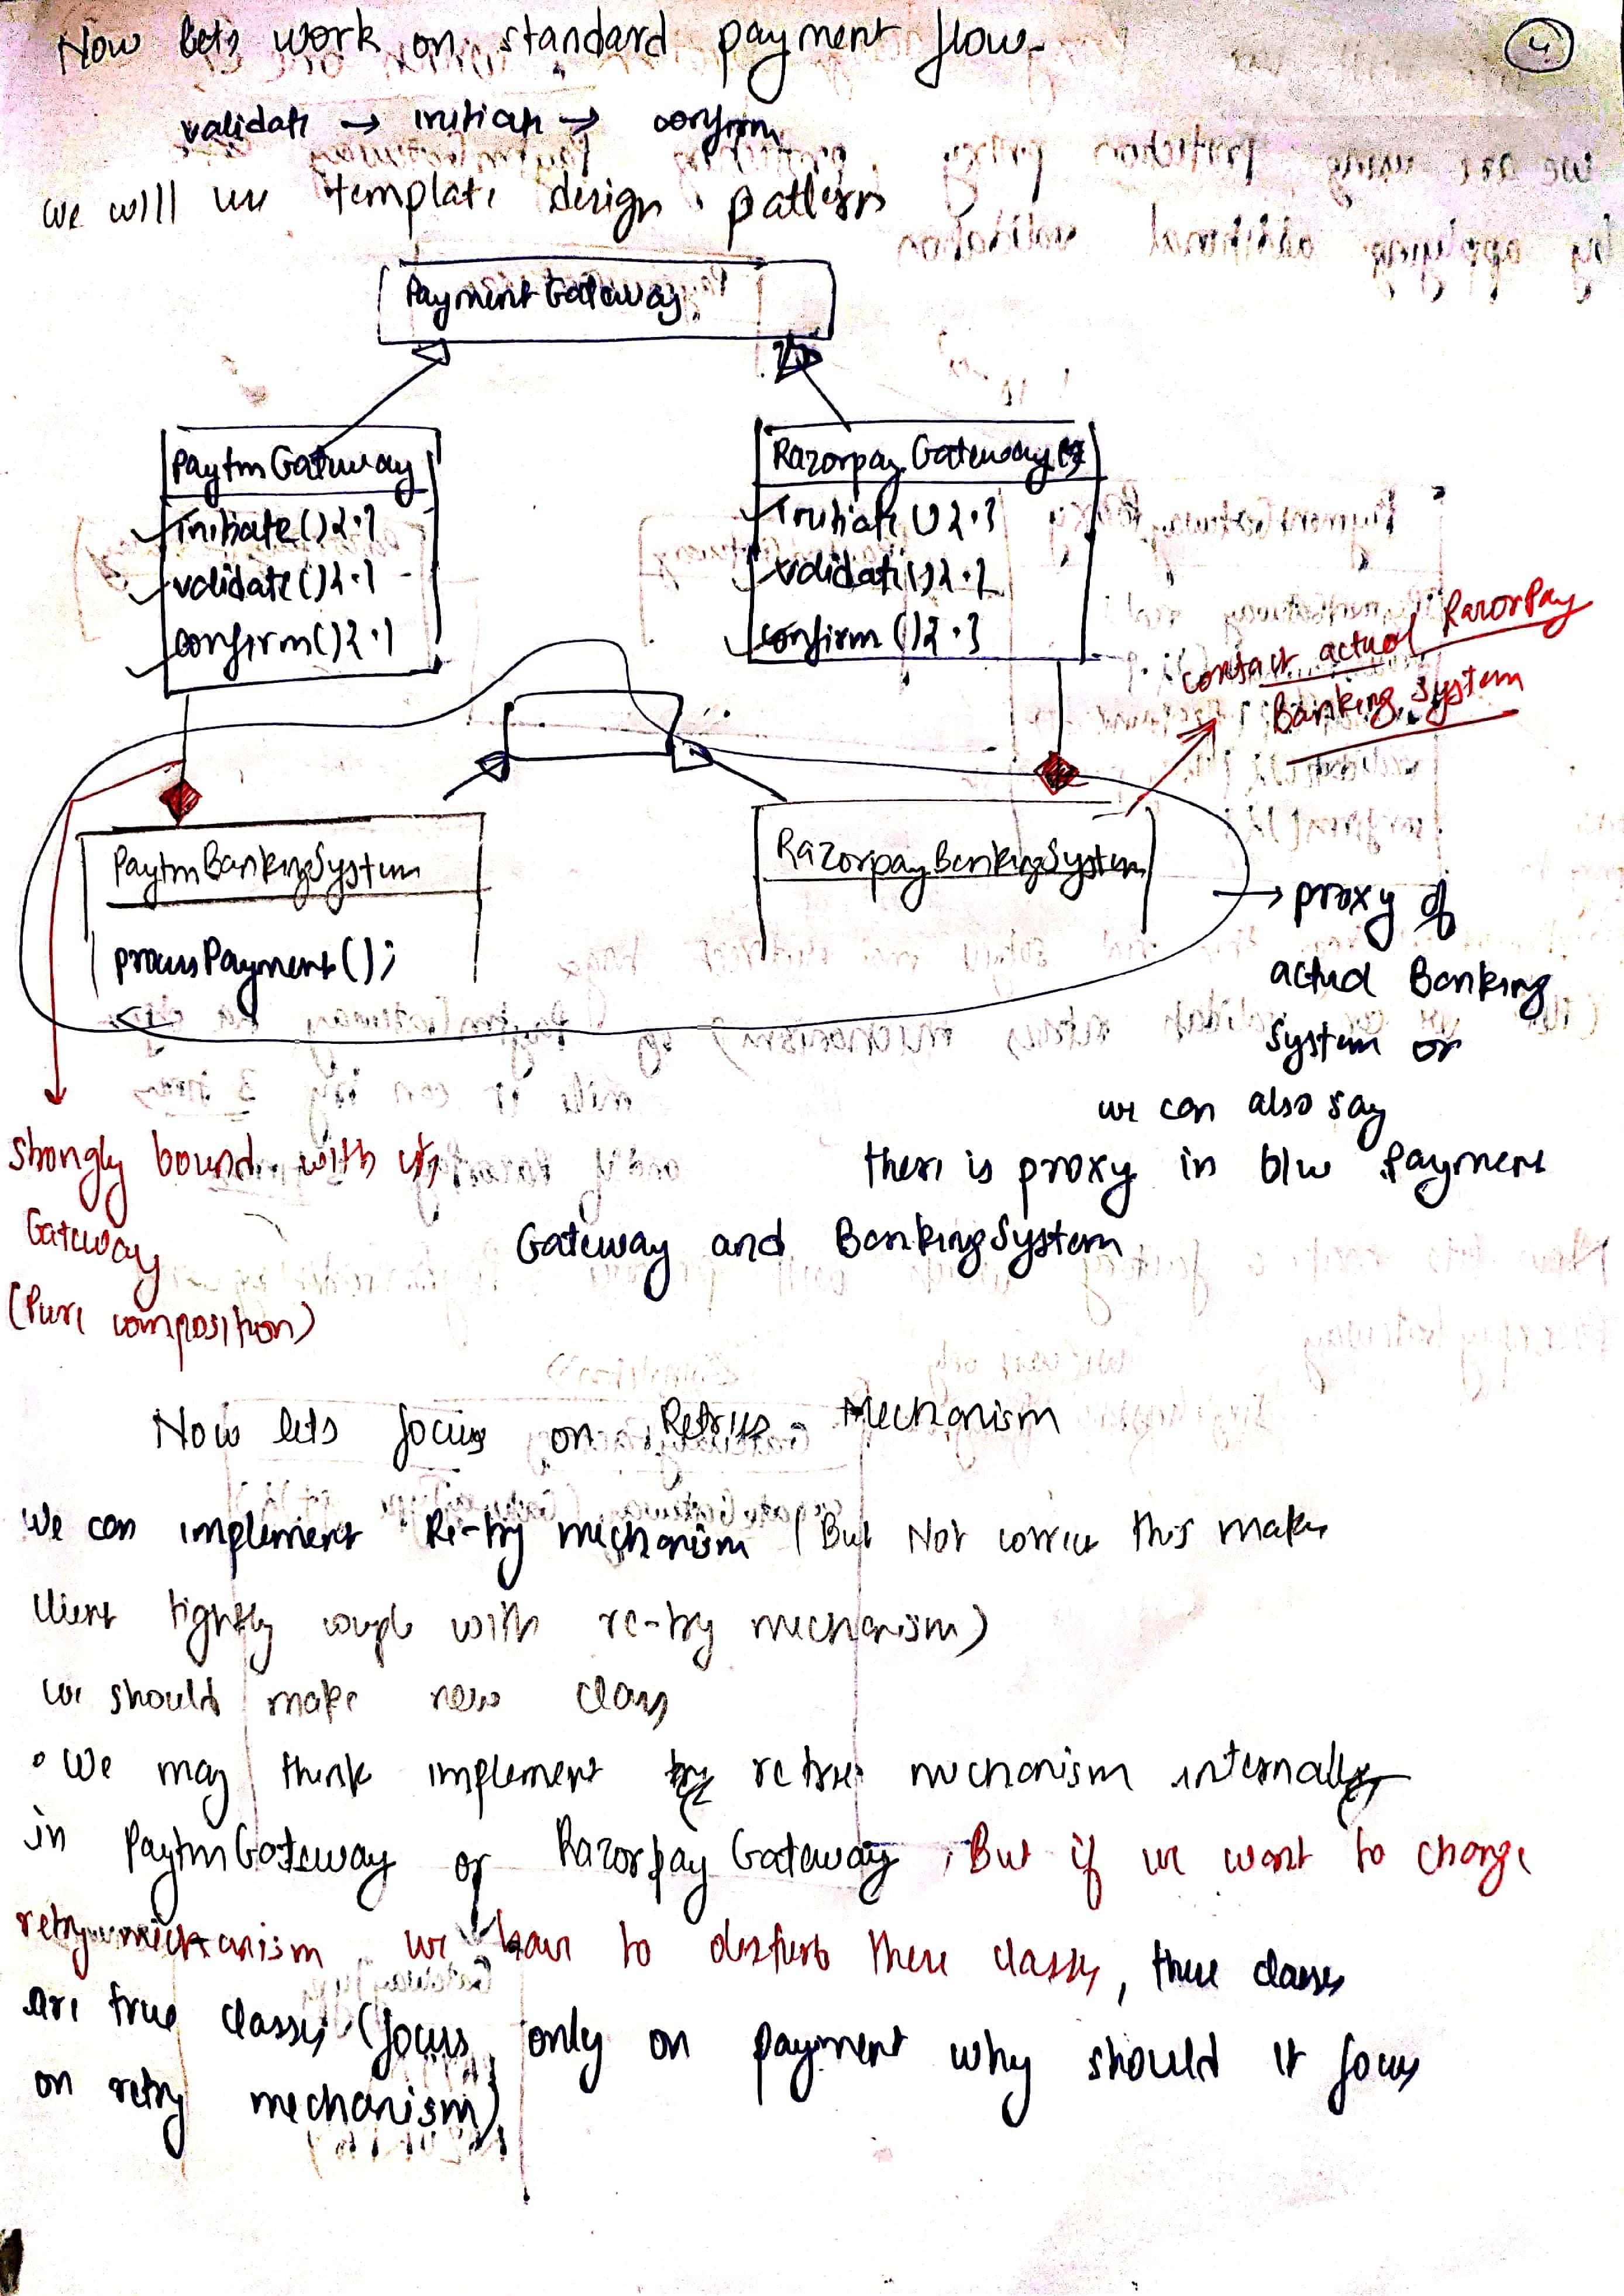 Now lets work on standard payment flow
4
validate → initiate → confirm
we will use template design pattern
PaymentGateway
PaytmGateway
initiate() { . }
validate() { . }
confirm() { . }
RazorpayGateway
Initiate () { . }
validate() { . }
confirm () { . }
contact actual RazorPay
Banking System
PaytmBankingSystem
processPayment();
RazorpayBankingSystem
→ proxy of
actual Banking
System or
we can also say
there is proxy in b/w Payment
Gateway and BankingSystem
strongly bound with its
Gateway
(Pure composition)
Now lets focus on Retries Mechanism
We can implement Re-try mechanism (But Not correct this makes
client tightly couple with re-try mechanism)
we should make new class
• We may think implement retries mechanism internally
in PaytmGateway or RazorpayGateway, But if we want to change
retry mechanism we have to disturb these classes, these classes
are true classes (focus only on payment why should it focus
on retry mechanism)